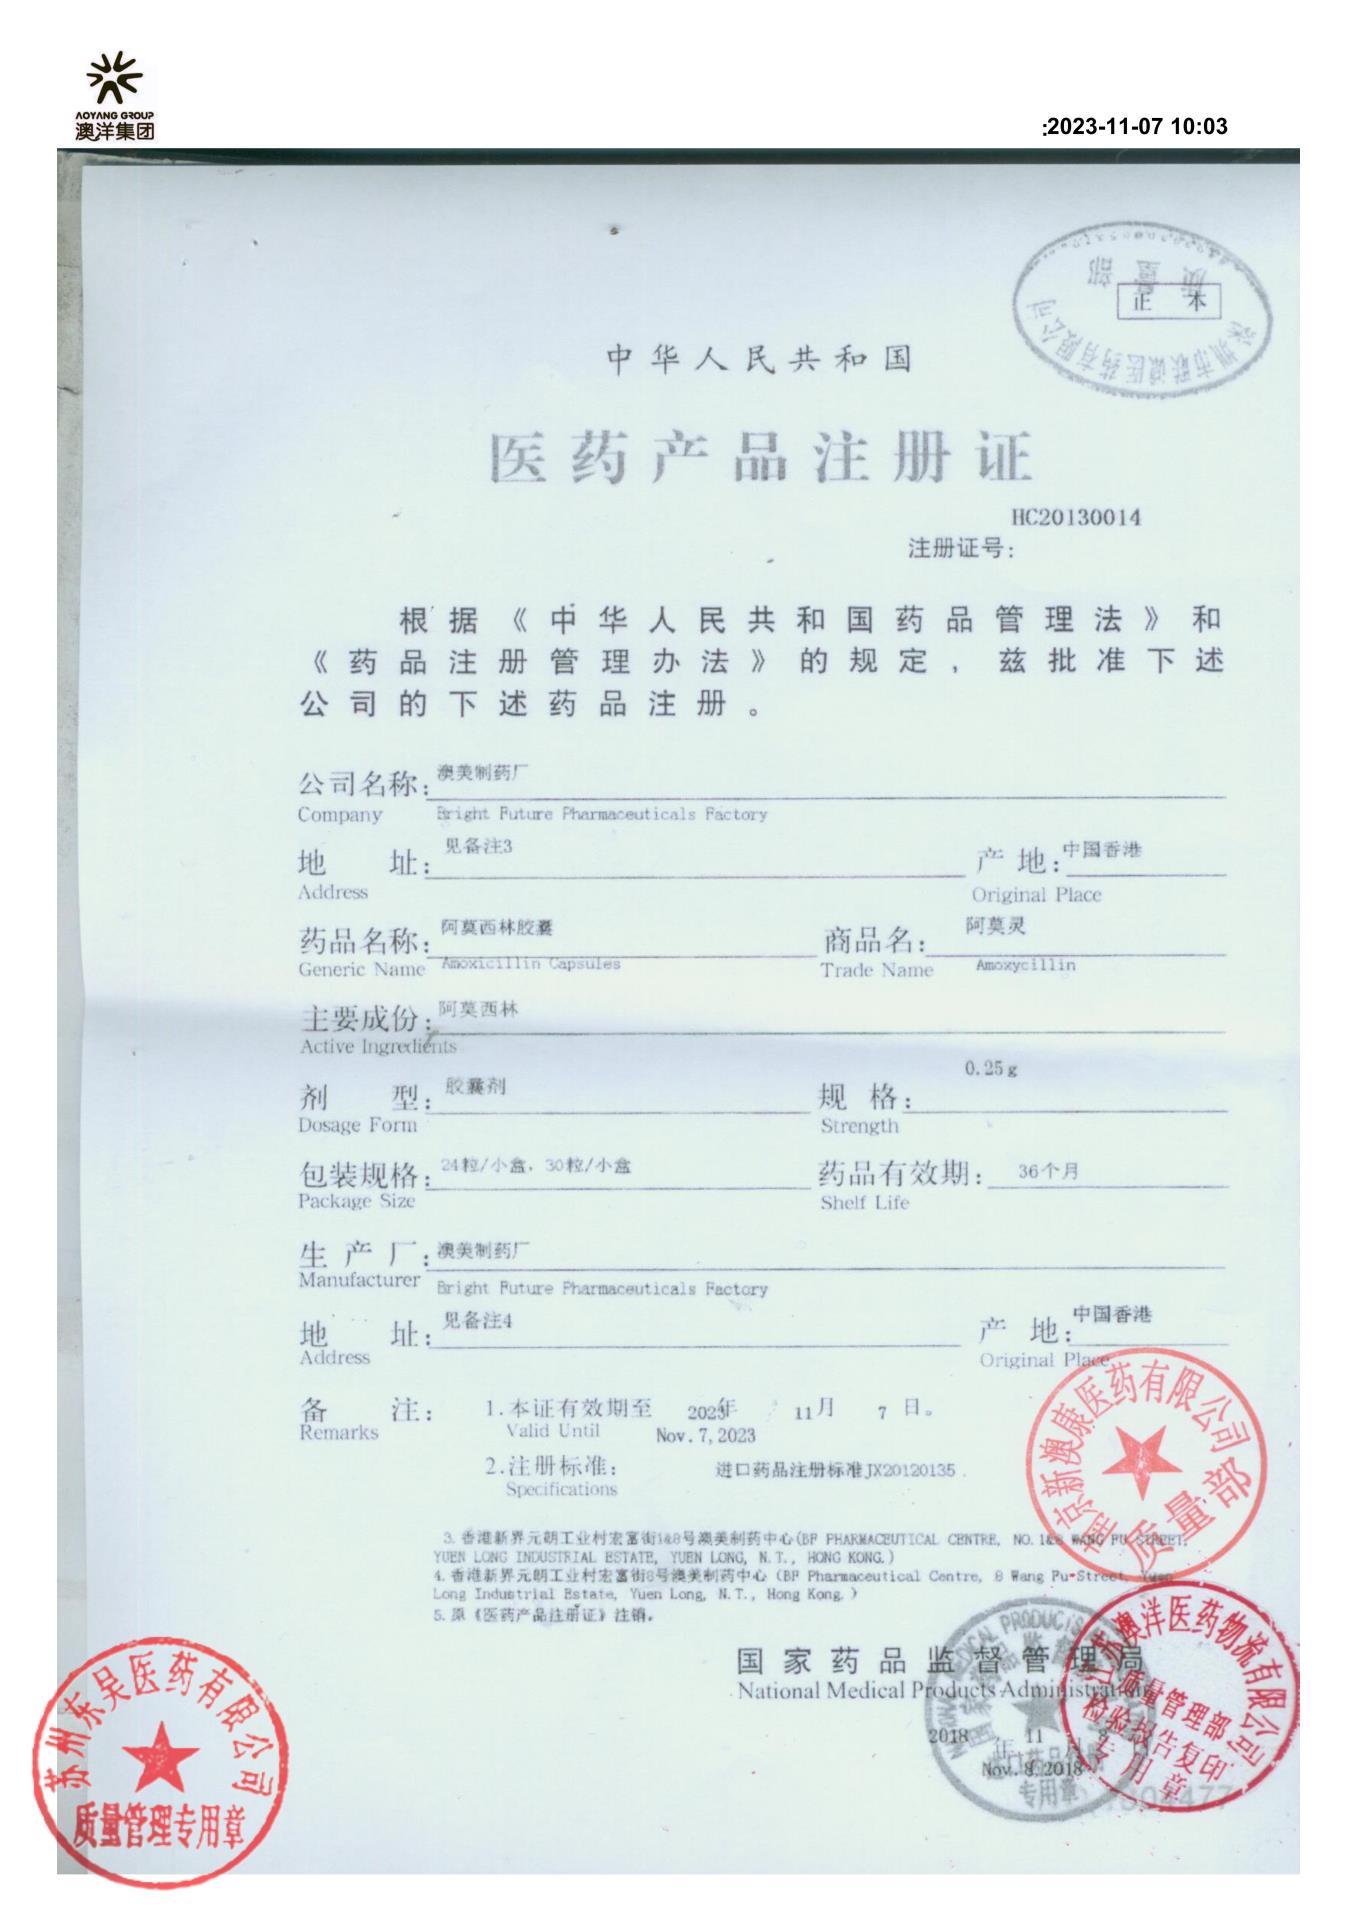 AOYANG GROUP
澳洋集团
:2023-11-07 10:03
质量部
正 本
深圳市联诚医药有限公司
中华人民共和国
医药产品注册证
HC20130014
注册证号：
根据《中华人民共和国药品管理法》和
《药品注册管理办法》的规定，兹批准下述
公司的下述药品注册。
公司名称： 澳美制药厂
Company Bright Future Pharmaceuticals Factory
地 址： 见备注3 产 地： 中国香港
Address Original Place
药品名称： 阿莫西林胶囊 商品名： 阿莫灵
Generic Name Amoxicillin Capsules Trade Name Amoxycillin
主要成份： 阿莫西林
Active Ingredients
0.25g
剂 型： 胶囊剂 规 格：
Dosage Form Strength
包装规格： 24粒/小盒，30粒/小盒 药品有效期： 36个月
Package Size Shelf Life
生 产 厂： 澳美制药厂
Manufacturer Bright Future Pharmaceuticals Factory
地 址： 见备注4 产 地： 中国香港
Address Original Place
备 注： 1.本证有效期至 2023年 11月 7 日。
Remarks Valid Until Nov. 7, 2023
2.注册标准： 进口药品注册标准JX20120135.
Specifications
3. 香港新界元朗工业村宏富街1&8号澳美制药中心(BF PHARMACEUTICAL CENTRE, NO.1&8 WANG FU STREET,
YUEN LONG INDUSTRIAL ESTATE, YUEN LONG, N.T., HONG KONG.)
4. 香港新界元朗工业村宏富街8号澳美制药中心 (BF Pharmaceutical Centre, 8 Wang Fu Street, Yuen
Long Industrial Estate, Yuen Long, N.T., Hong Kong.)
5. 原《医药产品注册证》注销。
南京新澳康医药有限公司
质量部
国家药品监督管理局
National Medical Products Administration
2018 年 11 月 8
Nov. 8, 2018
专用章
江苏澳洋医药物流有限公司
质量管理部
检验报告复印
专用章
苏州东吴医药有限公司
质量管理专用章